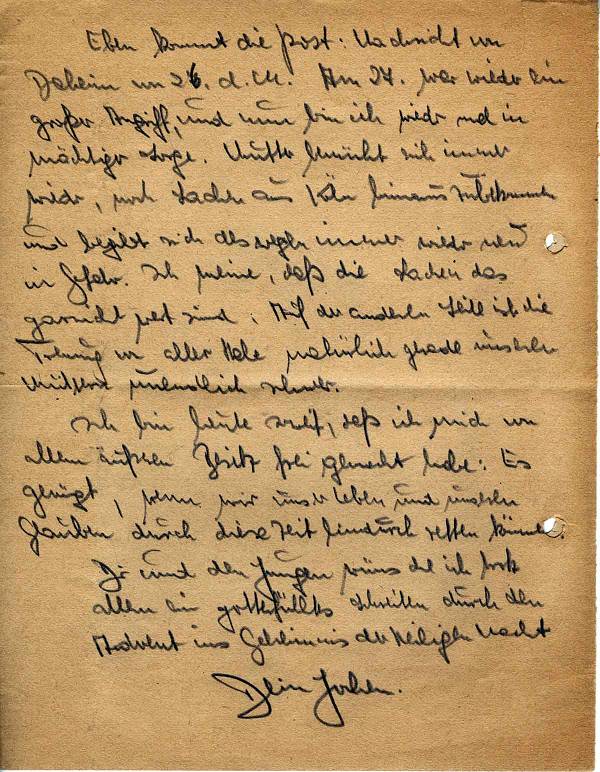 Eben kommt die Post: Nachricht von
Daheim vom 26. d. M. Am 27. war wieder ein
großer Angriff, und nun bin ich wieder mal in
mächtiger Sorge. Mutter bemüht sich immer
wieder, noch Sachen aus Köln hinauszubekommen
und begibt sich deswegen immer wieder neu
in Gefahr. Ich meine, daß die Sachen das
garnicht wert sind. Auf der anderen Seite ist die
Trennung von aller Habe natürlich gerade unseren
Müttern unendlich schwer.
Ich bin heute so weit, daß ich mich von
allem äußeren Besitz frei gemacht habe: Es
genügt, wenn wir unser Leben und unseren
Glauben durch diese Zeit hindurch retten können.
Dir und den Jungen wünsche ich trotz
allem ein gotterfülltes Schreiten durch den
Advent ins Geheimnis der Heiligen Nacht
Dein Jochen.